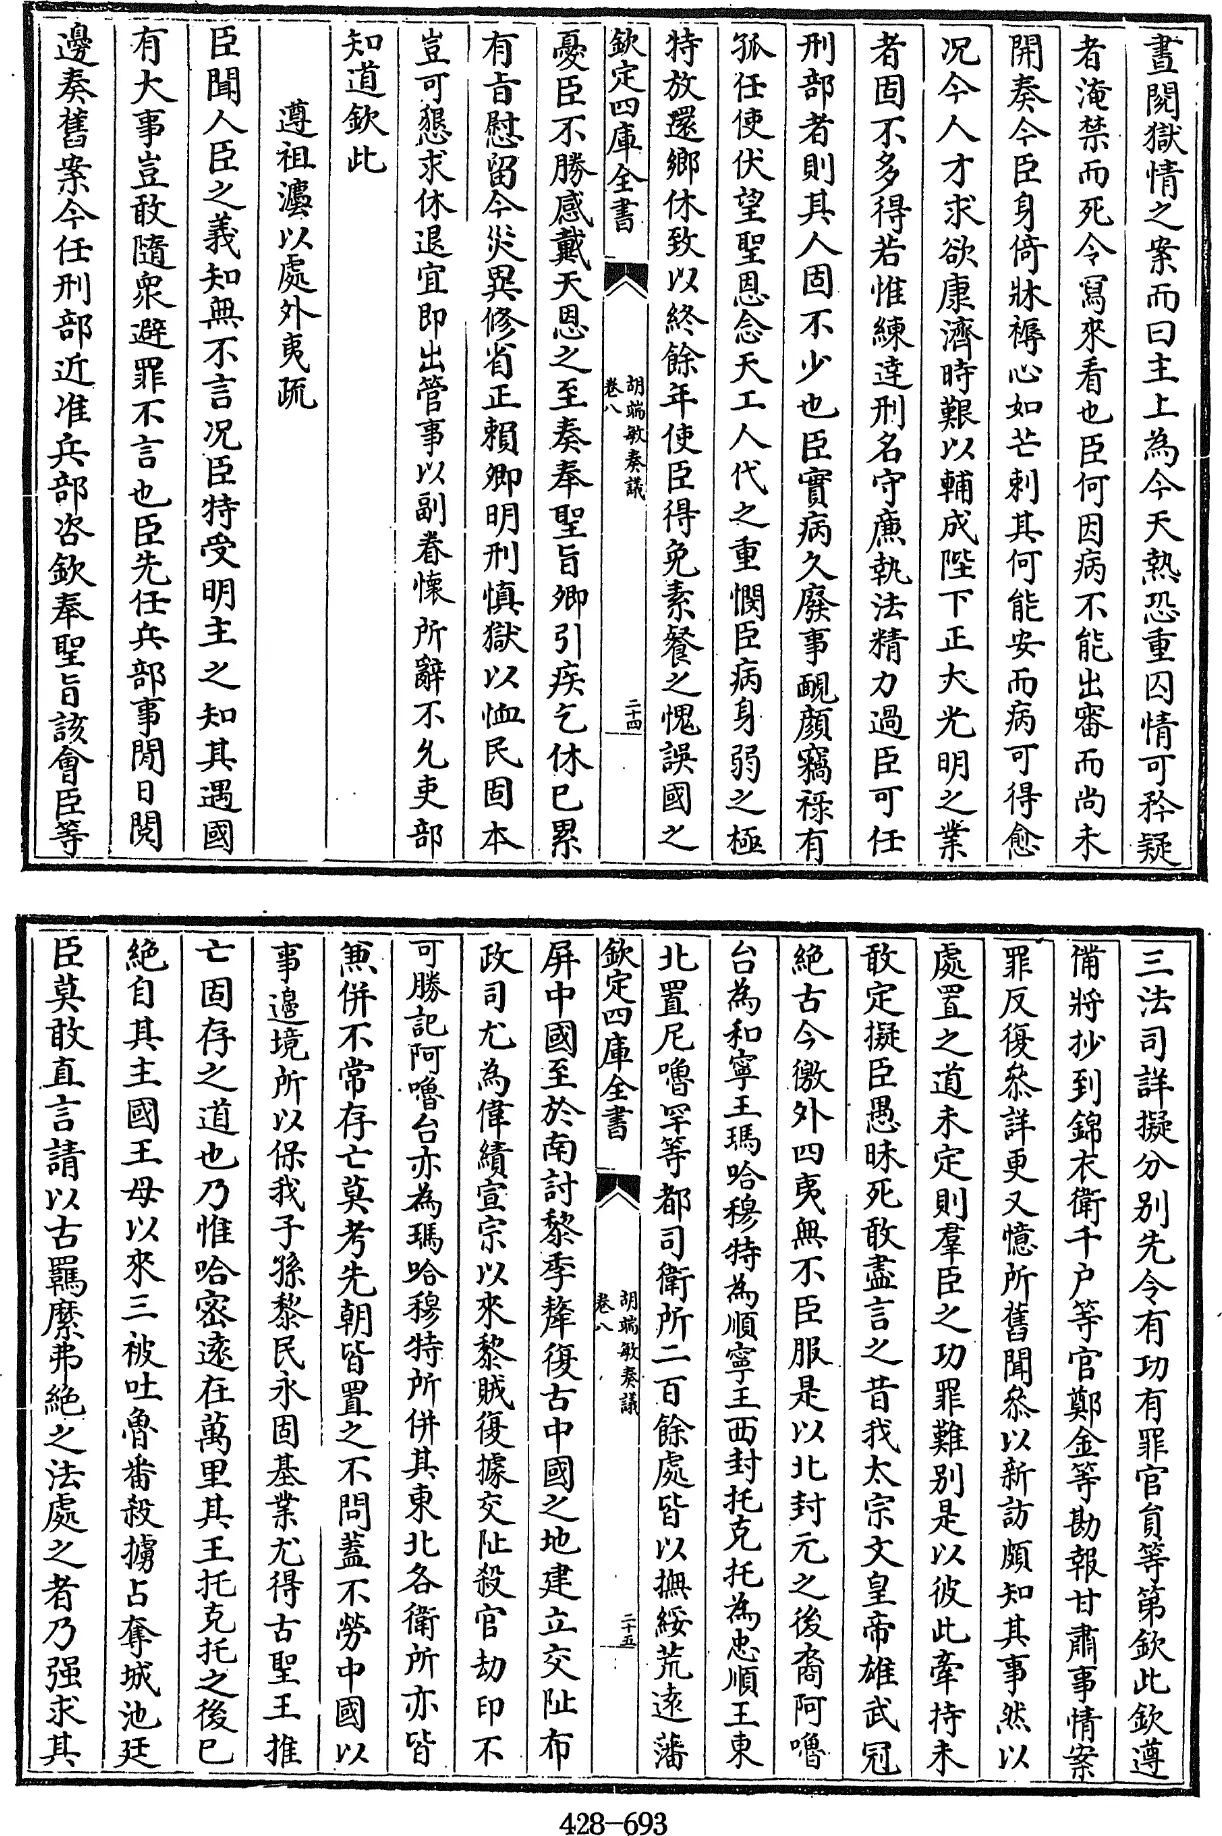 晝閱獄情之案而曰主上為今天熱恐重囚情可矜疑
者淹禁而死令寫來看也臣何因病不能出審而尚未
開奏今臣身倚牀褥心如芒刺其何能安而病可得愈
况今人才求欲康濟時艱以輔成陛下正大光明之業
者固不多得若惟練達刑名守亷執法精力過臣可任
刑部者則其人固不少也臣實病久廢事靦顔竊祿有
孤任使伏望聖恩念天工人代之重憫臣病身弱之極
特放還鄉休致以終餘年使臣得免素餐之愧誤國之
欽定四庫全書
胡端敏奏議
卷八
二十四
憂臣不勝感戴天恩之至奏奉聖旨卿引疾乞休已累
有旨慰留今災異修省正賴卿明刑慎獄以恤民固本
豈可懇求休退宜即出管事以副眷懷所辭不允吏部
知道欽此
遵祖灋以處外夷疏
臣聞人臣之義知無不言况臣特受明主之知其遇國
有大事豈敢隨衆避罪不言也臣先任兵部事閒日閱
邊奏舊案今任刑部近准兵部咨欽奉聖旨該會臣等
三法司詳擬分别先令有功有罪官員等第欽此欽遵
備將抄到錦衣衛千户等官鄭金等勘報甘肅事情案
罪反復叅詳更又憶所舊聞叅以新訪頗知其事然以
處置之道未定則羣臣之功罪難别是以彼此牽持未
敢定擬臣愚昧死敢盡言之昔我太宗文皇帝雄武冠
絶古今徼外四夷無不臣服是以北封元之後裔阿嚕
台為和寧王瑪哈穆特為順寧王西封托克托為忠順王東
北置尼嚕罕等都司衛所二百餘處皆以撫綏荒遠藩
欽定四庫全書
胡端敏奏議
卷八
二十五
屏中國至於南討黎季犛復古中國之地建立交阯布
政司尤為偉績宣宗以來黎賊復據交阯殺官劫印不
可勝記阿嚕台亦為瑪哈穆特所併其東北各衛所亦皆
兼併不常存亡莫考先朝皆置之不問蓋不勞中國以
事邊境所以保我子孫黎民永固基業尤得古聖王推
亡固存之道也乃惟哈密遠在萬里其王托克托之後已
絶自其主國王母以來三被吐魯番殺擄占奪城池廷
臣莫敢直言請以古羈縻弗絶之法處之者乃强求其
428-693